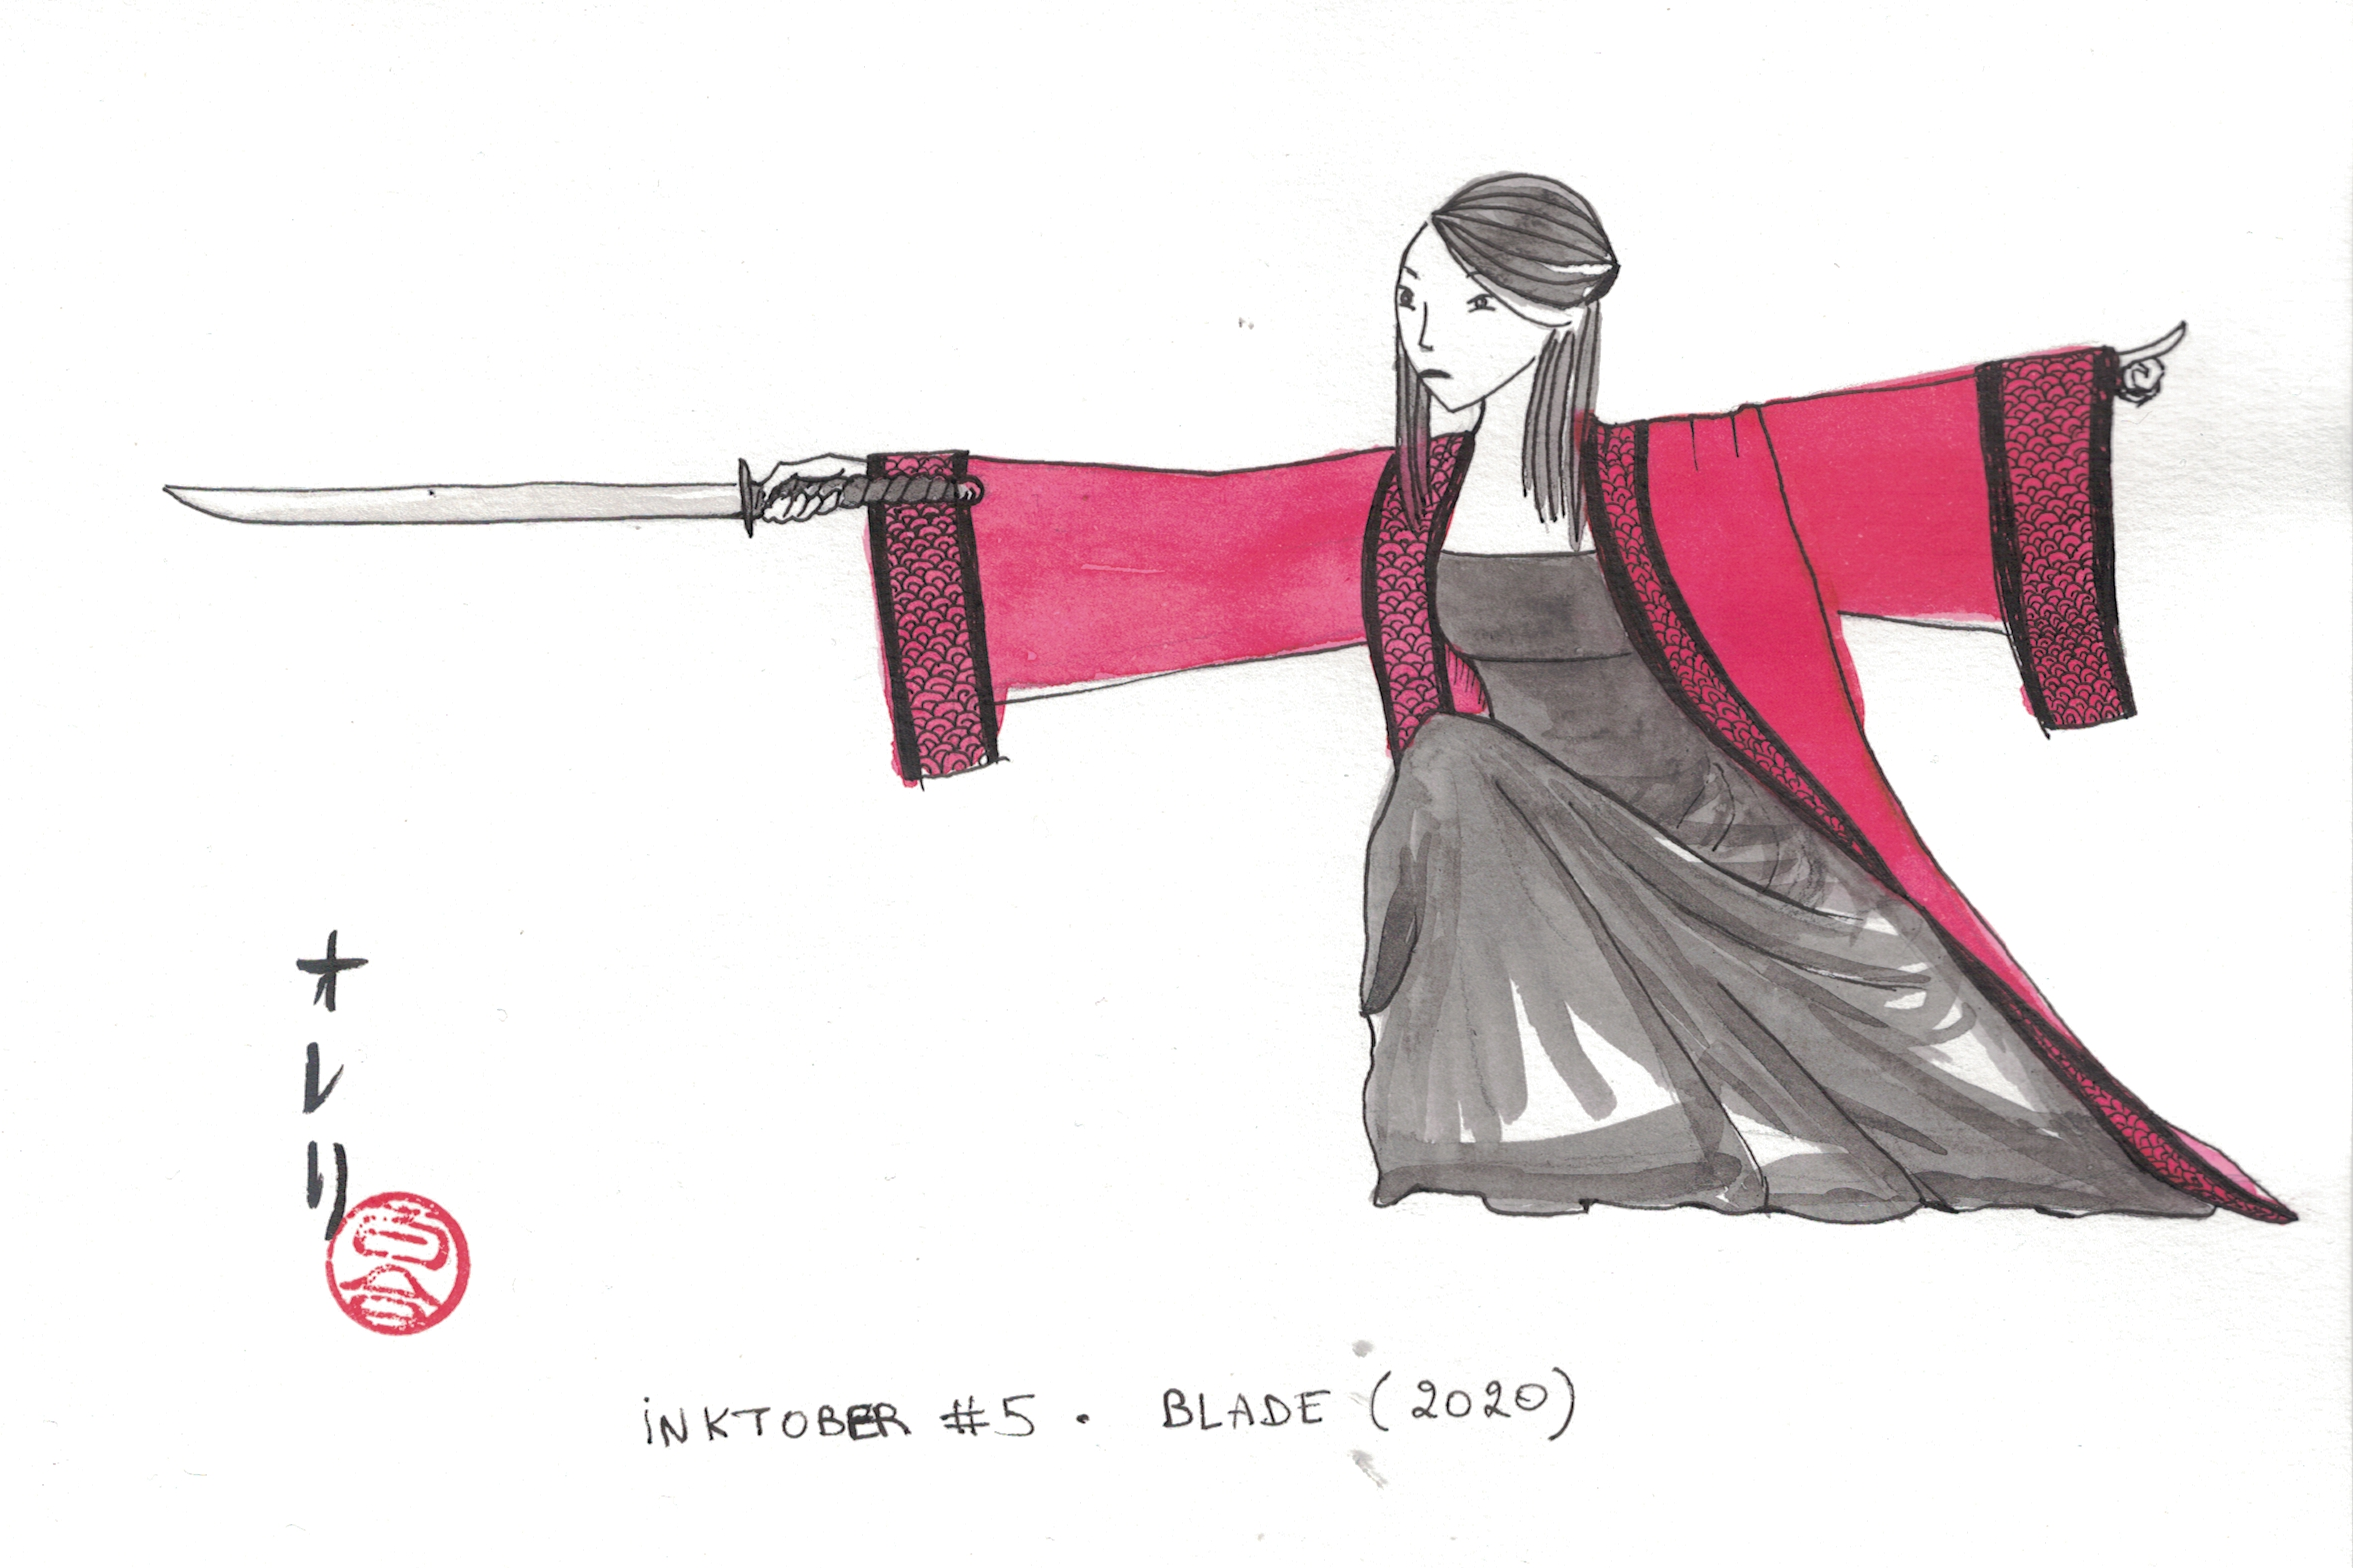 オレリ
INKTOBER #5. BLADE (2020)